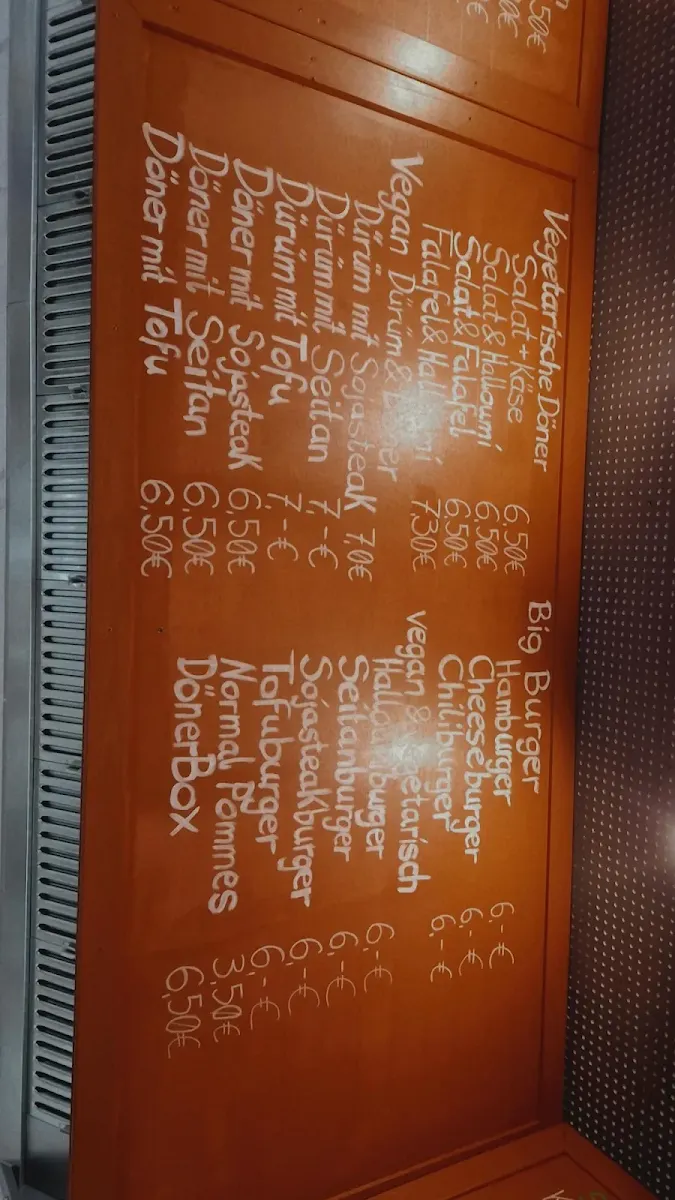 50€
50€
€
Vegetarische Döner
Salat + Käse 6,50€
Salat & Halloumi 6,50€
Salat & Falafel 6,50€
Falafel & 7,30€
Vegan Dürüm &
Dürüm mit Sojasteak 7,0€
Dürüm mit Seitan 7,-€
Dürüm mit Tofu 7,-€
Döner mit Sojasteak 6,50€
Döner mit Seitan 6,50€
Döner mit Tofu 6,50€
Big Burger
Hamburger 6,-€
Cheeseburger 6,-€
Chiliburger 6,-€
vegan & vegetarisch
Halloumiburger 6,-€
Seitanburger 6,-€
Sojasteakburger 6,-€
Tofuburger 6,-€
Normal Pommes 3,50€
DönerBox 6,50€